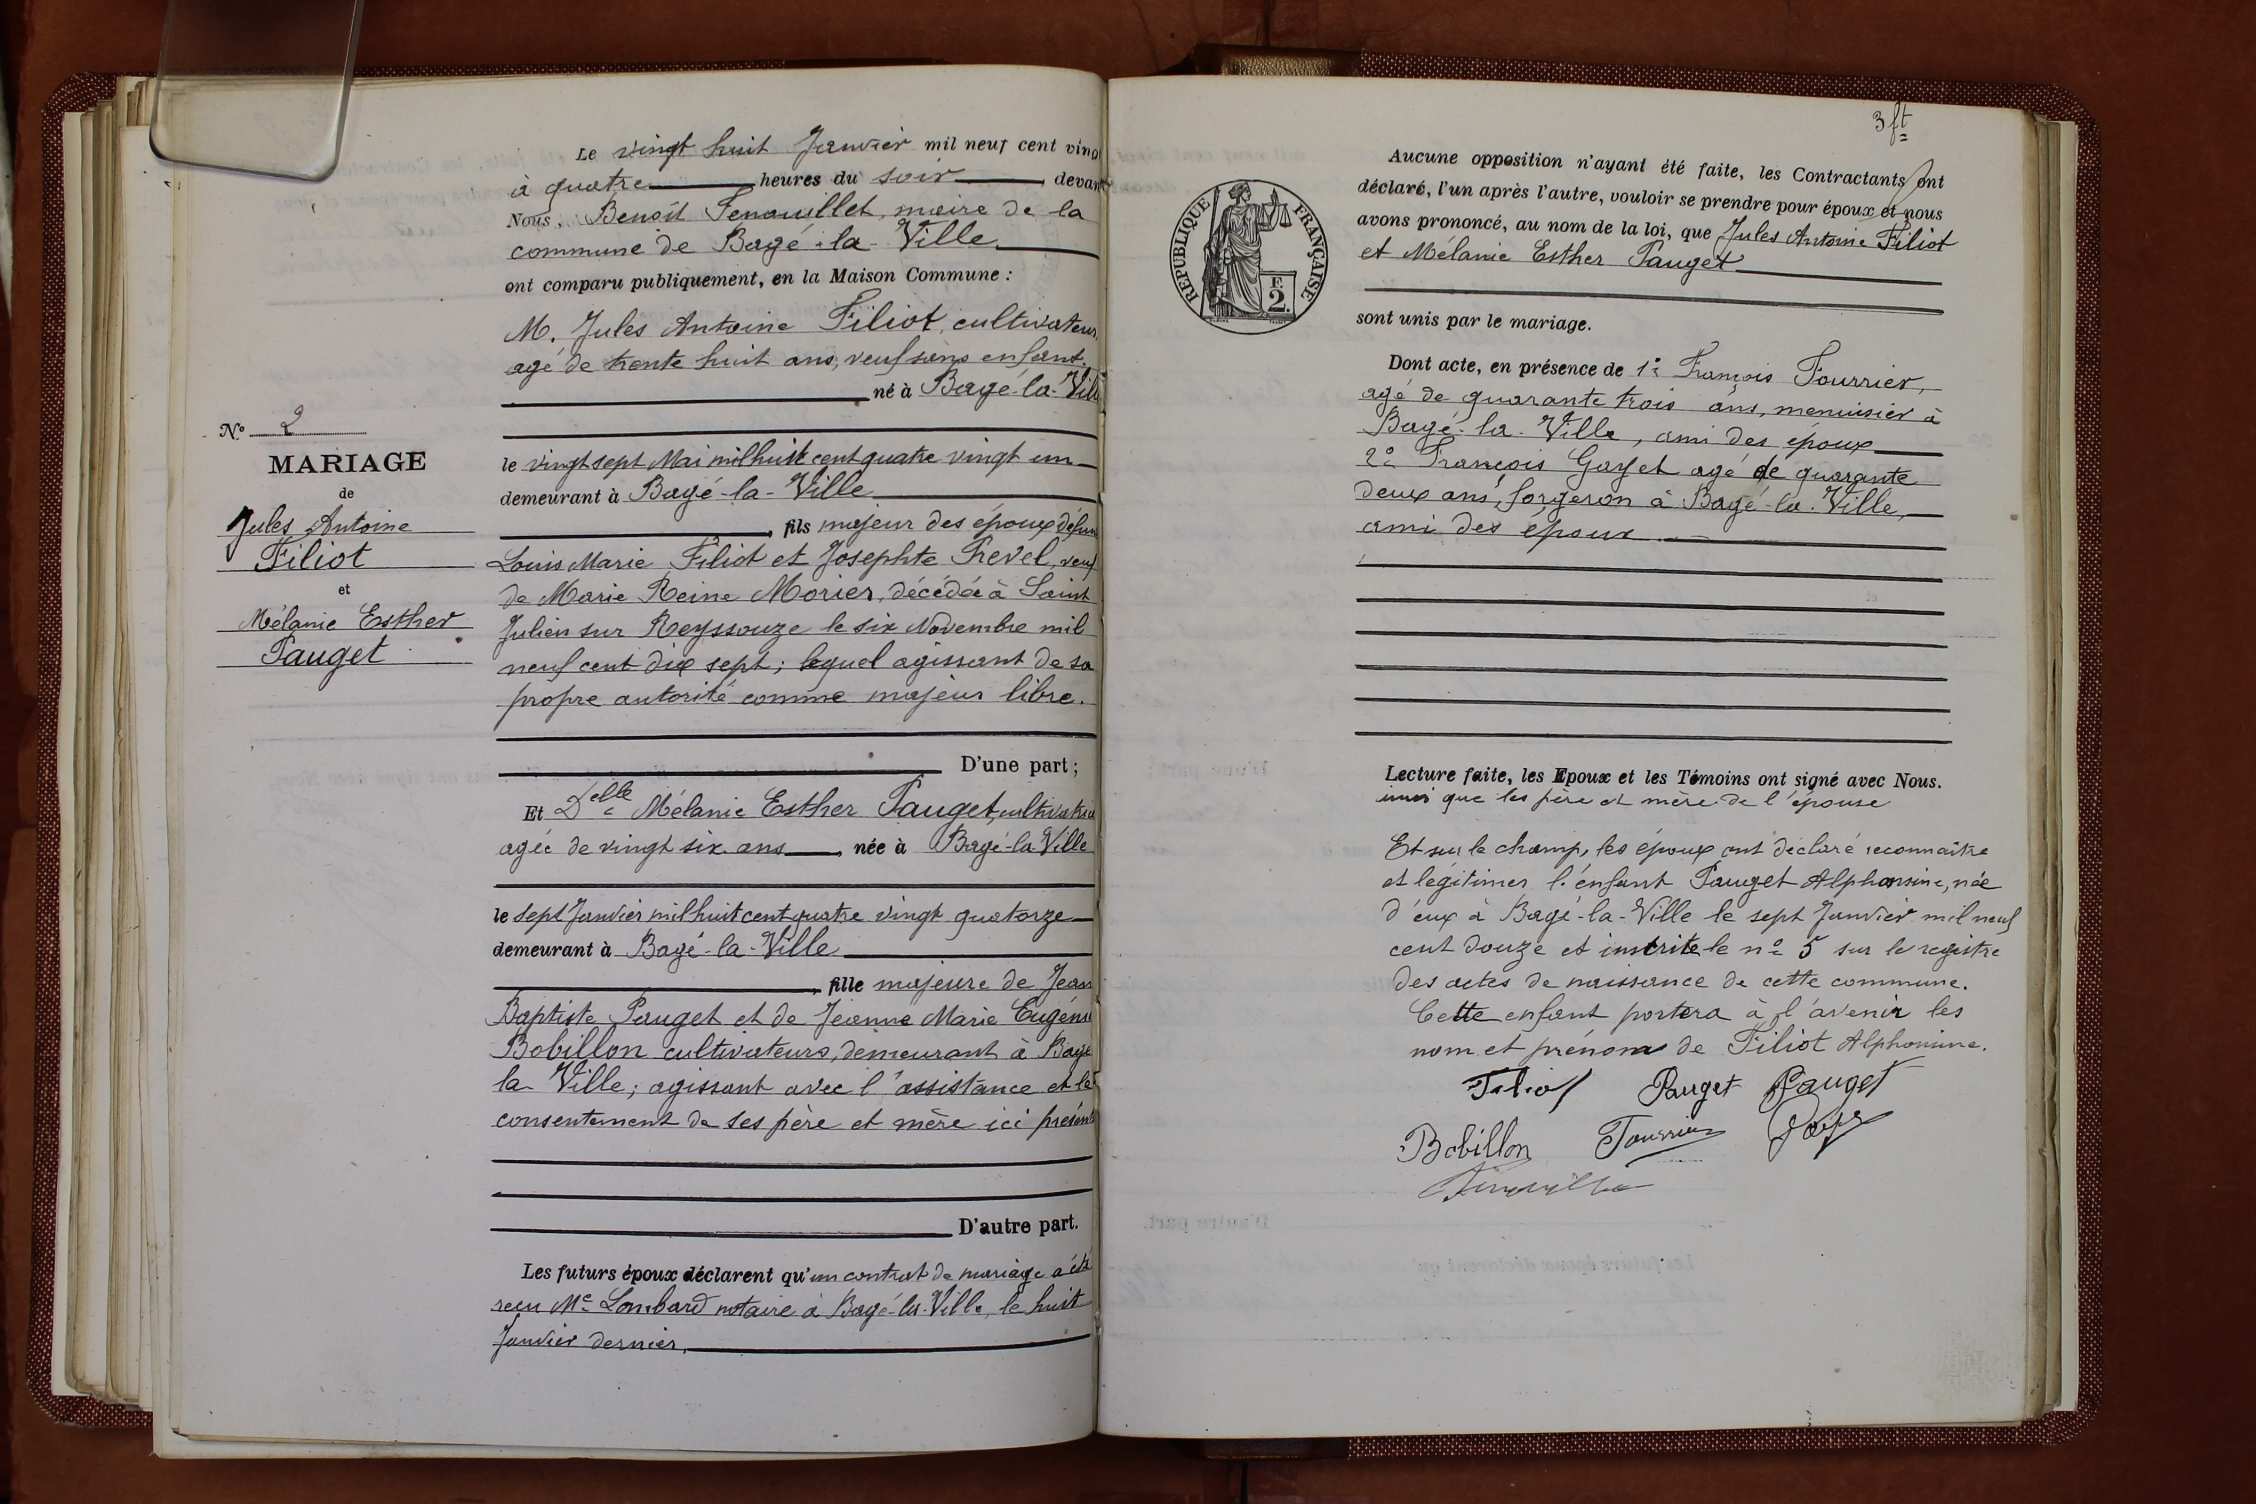 Le vingt huit Janvier mil neuf cent vin
à quatre heures du soir, devan
Nous, Benoît Fenouillet, maire de la
commune de Bagé-la-Ville
ont comparu publiquement, en la Maison Commune :
M. Jules Antoine Filiot, cultivateur,
agé de trente huit ans, veuf sans enfant.
né à Bagé-la-Ville
le vingt sept Mai mil huit cent quatre vingt un
demeurant à Bagé-la-Ville
, fils majeur des époux défun
Louis Marie Filiot et Josephte Prevel, veuf
de Marie Reine Morier, décédée à Saint
Julien sur Reyssouze le six Novembre mil
neuf cent dix sept ; lequel agissant de sa
propre autorité comme majeur libre.
D'une part ;
Nº 2
MARIAGE
de
Jules Antoine
Filiot
et
Mélanie Esther
Pauget
Et Delle Mélanie Esther Pauget, cultivatrice
agée de vingt six ans, née à Bagé-la Ville
le sept Janvier mil huit cent quatre vingt quatorze
demeurant à Bagé-la-Ville
, fille majeure de Jean
Baptiste Pauget et de Jeanne Marie Eugénie
Bobillon cultivateurs, demeurant à Bagé
la-Ville ; agissant avec l'assistance et le
consentement de ses père et mère ici présents
D'autre part.
Les futurs époux déclarent qu'un contrat de mariage a été
reçu Me Lombard notaire à Bagé-la-Ville, le huit
Janvier dernier.
3 ft
RÉPUBLIQUE FRANÇAISE
F.
2.
Aucune opposition n'ayant été faite, les Contractants ont
déclaré, l'un après l'autre, vouloir se prendre pour époux et nous
avons prononcé, au nom de la loi, que Jules Antoine Filiot
et Mélanie Esther Pauget
sont unis par le mariage.
Dont acte, en présence de 1º François Fourrier,
agé de quarante trois ans, menuisier à
Bagé-la-Ville, ami des époux
2º François Gayet agé de quarante
deux ans, forgeron à Bagé-la-Ville,
ami des époux.
Lecture faite, les Epoux et les Témoins ont signé avec Nous.
que les père et mère de l'épouse
Et sur le champ, les époux ont déclaré reconnaître
et légitimer l'enfant Pauget Alphonsine, née
d'eux à Bagé-la-Ville le sept Janvier mil neuf
cent douze et inscrite le nº 5 sur le registre
des actes de naissance de cette commune.
Cette enfant portera à l'avenir les
nom et prénom de Filiot Alphonsine.
Filiot Pauget Pauget
Bobillon Fourrier